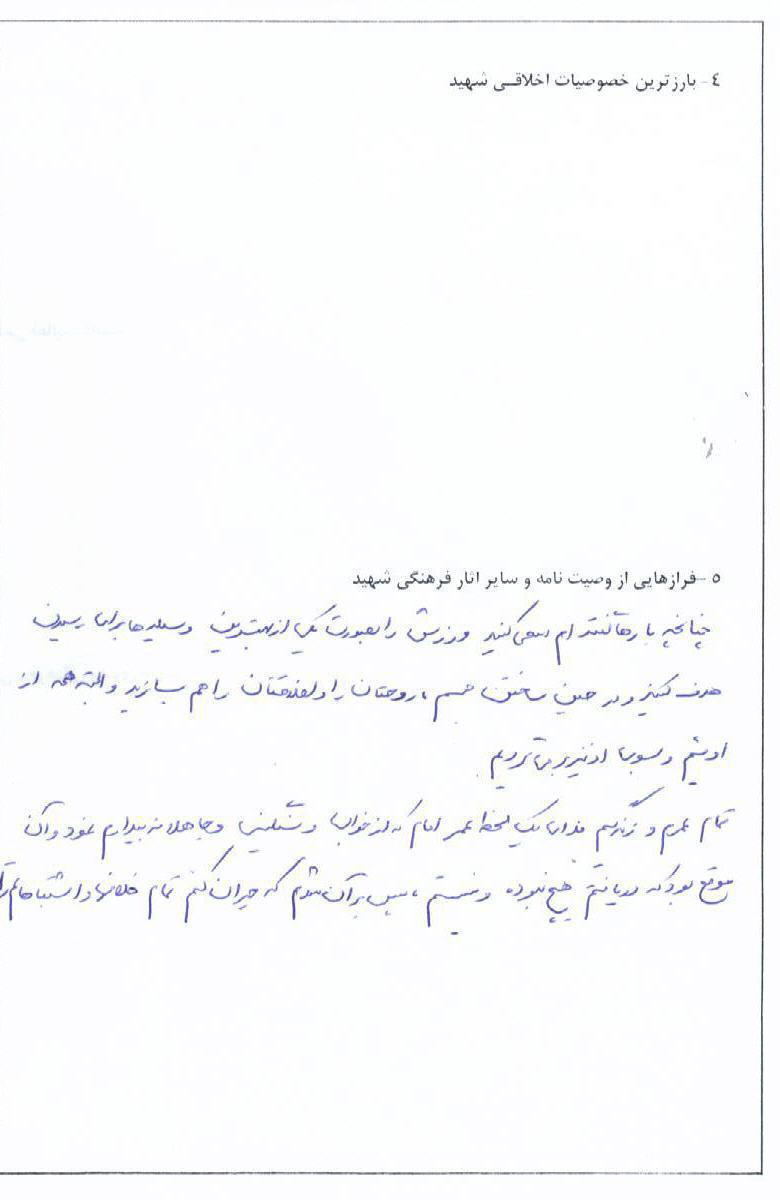 ٤- بارزترین خصوصیات اخلاقی شهید
٥-فرازهایی از وصیت نامه و سایر اثار فرهنگی شهید
چنانچه بارها گفته ام سعی کنید ورزش را بصورت یکی از بهترین وسیله ها برای رسیدن
هدف کنید و در حین ساختن جسم ، روحتان را و اخلاقتان را هم بسازید و البته همه از
اوئیم و بسوی او نیز بر می گردیم
تمام عمرم و زندگیم فدای یک لحظه عمر امام که از خواب و جاهلانه بیدارم نمود و آن
موقع بود که دریافتم هیچ نبوده و نیستم ، سپس بر آن شدم که جبران کنم تمام خلافها و اشتباهاتم را